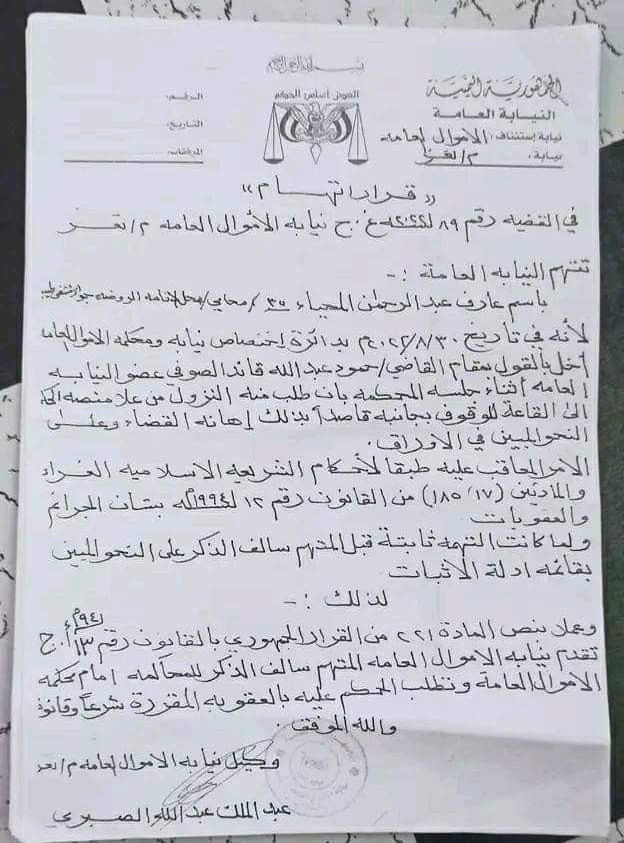 بسم الله الرحمن الرحيم
الجمهورية اليمنية
النيابة العامة
نيابة إستئناف: الاموال العامه
نيابة: م/تعز
العدل أساس الحكم
الرقم:
التاريخ:
المرفقات:
" قرار اتهام "
في القضيه رقم ٨٩ لسنة ٢٠٢٢م غ.ج نيابه الأموال العامه م/تعز
تتهم النيابه العامة :-
باسم عارف عبدالرحمن المحياء ٣٥/ محامي/ محل إقامته الروضه جوار
لأنه في تأريخ ٢٠٢٢/٨/٣٠م بدائرة إختصاص نيابه ومحكمه الاموال العامه
أخل بالقول بمقام القاضي/ حمود عبدالله قائد الصوفي عضو النيابه
العامه أثناء جلسه المحكمه بان طلب منه النزول من علا منصه
الى القاعة للوقوف بجانبه قاصداً بذلك إهانه القضاء وعلى
النحو المبين في الاوراق.
الامر المعاقب عليه طبقا لأحكام الشريعه الاسلاميه الغراء
والمادتين (١٧، ١٨٥) من القانون رقم ١٢ لسنة ٩٩٤م بشان الجرائم
والعقوبات
ولما كانت التهمه ثابتة قبل المتهم سالف الذكر على النحو المبين
بقائمه ادلة الاثبات
لذلك :-
وعملا بنص المادة ٢٢١ من القرار الجمهوري بالقانون رقم ١٣ لسنة ٩٤م أ.ج
تقدم نيابه الاموال العامه المتهم سالف الذكر للمحاكمه امام محكمه
الاموال العامة ونطلب الحكم عليه بالعقوبه المقررة شرعاً وقانونا
والله الموفق.
وكيل نيابه الاموال العامه م/تعز
عبدالملك عبدالله الصبري